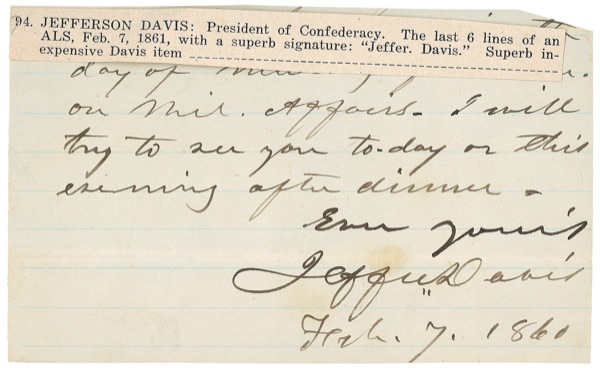 94. JEFFERSON DAVIS: President of Confederacy. The last 6 lines of an
ALS, Feb. 7, 1861, with a superb signature: "Jeffer. Davis." Superb in-
expensive Davis item
day of
on Mil. Affairs- I will
try to see you to-day or this
evening after dinner -
Ever yours
Jeffer. Davis
Feb. 7. 1860